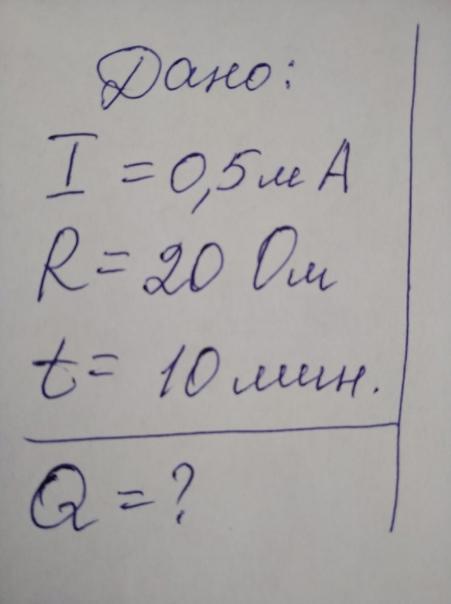 Дано:
I = 0,5 мА
R = 20 Ом
t = 10 мин.
Q = ?